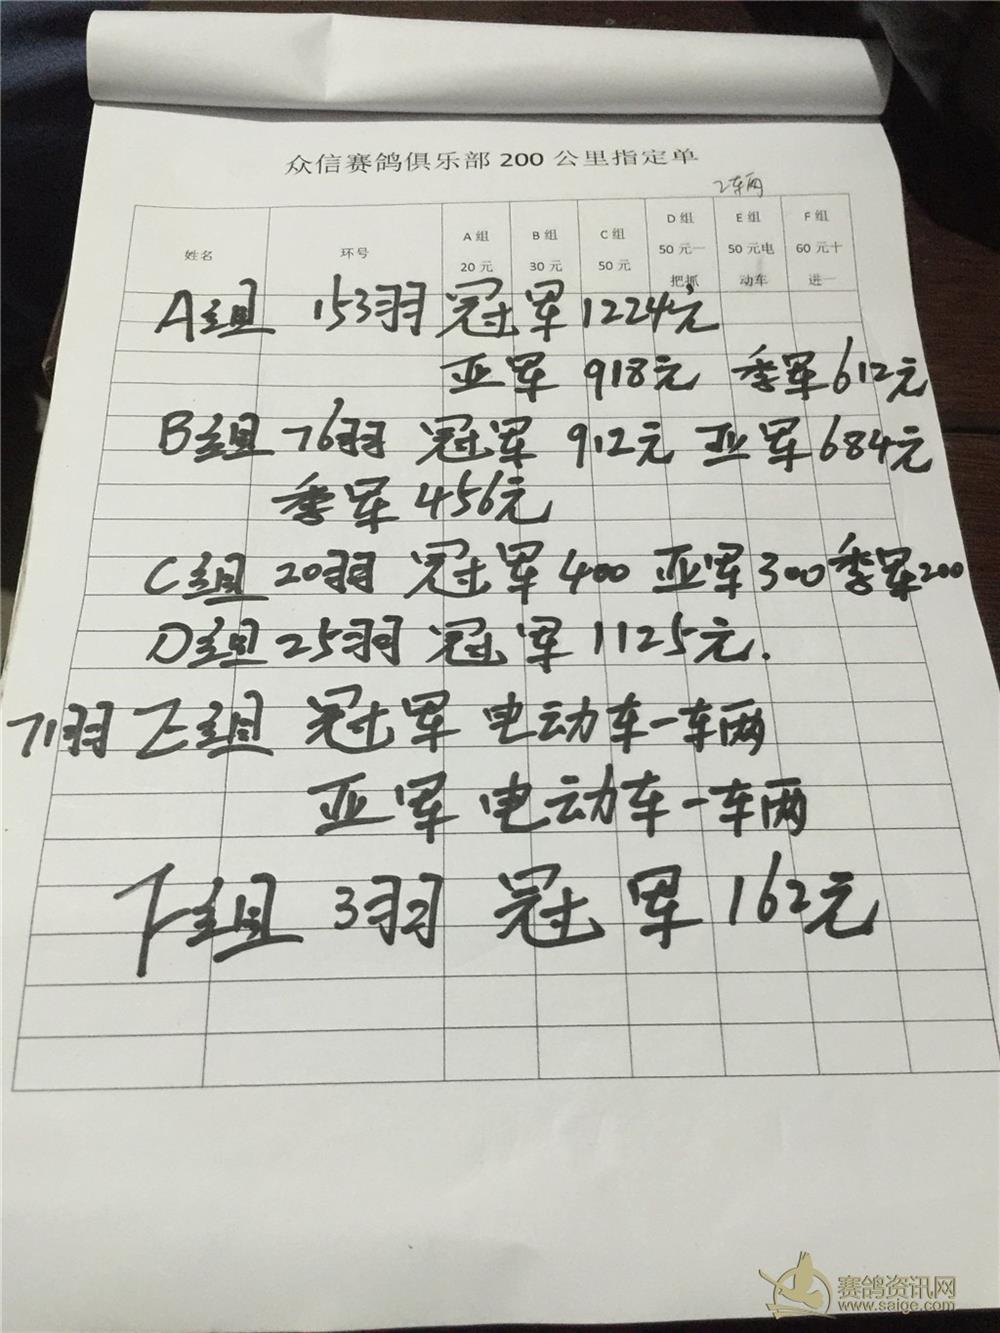 众信赛鸽俱乐部 200 公里指定单
2车两
姓名 环号 A 组 20 元 B 组 30 元 C 组 50 元 D 组 50 元一把抓 E 组 50 元电动车 F 组 60 元十进一
A组 153羽 冠军1224元
亚军 918元 季军612元
B组 76羽 冠军 912元 亚军684元
季军 456元
C组 20羽 冠军400 亚军300季军200
D组 25羽 冠军 1125元.
71羽 E组 冠军 电动车一车两
亚军 电动车一车两
F组 3羽 冠军 162元
赛鸽资讯网
www.saige.com